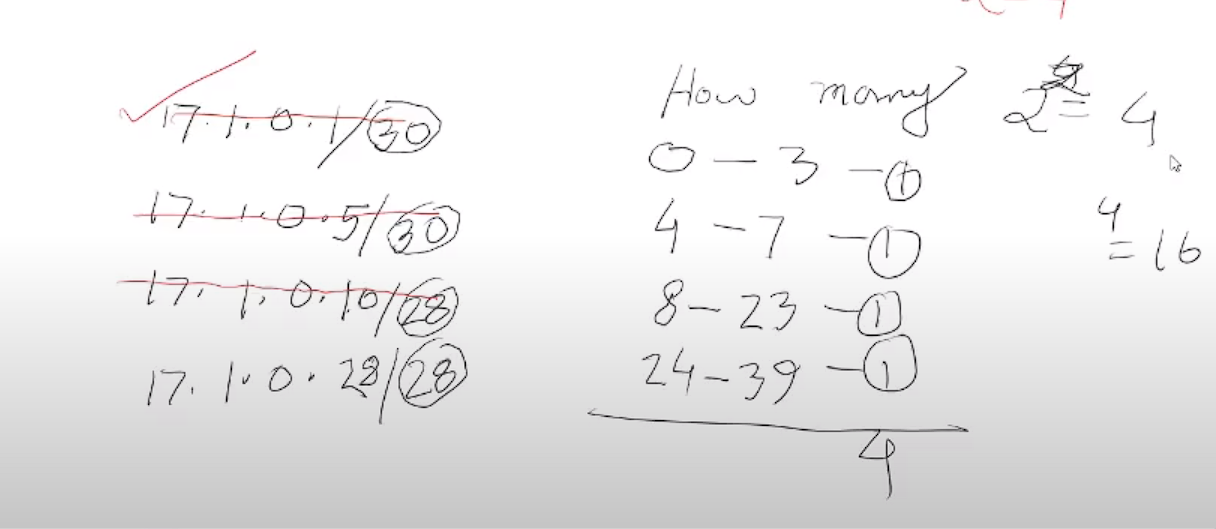 17.1.0.1/30
17.1.0.5/30
17.1.0.10/28
17.1.0.28/28
How many
0-3 -1
4-7 -1
8-23 -1
24-39 -1
4
2 = 4
4
= 16